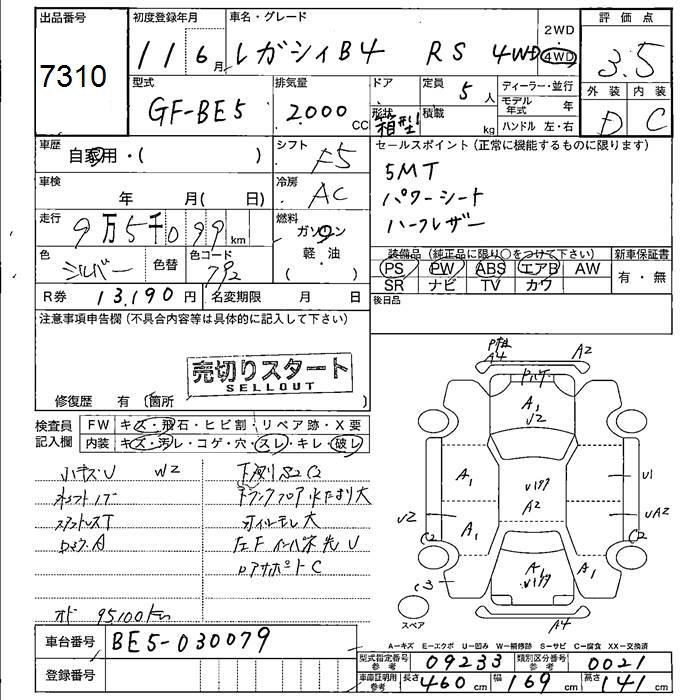 出品番号 初度登録年月 車名・グレード 評価点
7310 11 6月 レガシィB4 RS 4WD 2WD 4WD 3.5
型式 排気量 ドア 定員 5人 ディーラー・並行 外装 内装
GF-BE5 2000cc 形状 箱型 積載 kg モデル年式 年 D C
ハンドル 左・右
車歴 自家用・( ) シフト F5 セールスポイント(正常に機能するものに限ります)
5MT
車検 年 月( 日) 冷房 AC パワーシート
ハーフレザー
走行 9万5千099km 燃料 ガソリン
軽・油
( )
色 シルバー 色替 色コード 装備品(純正品に限り○をつけて下さい) 新車保証書
PS PW ABS エアB AW 有・無
SR ナビ TV カワ
R券 13,190円 名変期限 月 日 後日品
注意事項申告欄(不具合内容等は具体的に記入して下さい)
売切りスタート
SELLOUT
修復歴 有(箇所 )
検査員記入欄 FW キズ・飛石・ヒビ割・リペア跡・X要
内装 キズ・汚レ・コゲ・穴・スレ・キレ・破レ
小キズU W2 下廻りS2C2
トランクフロア水たまり大
オイルモレ大
ロアサポートC
95100km
P桂 A4 A2
A1 U2
A1 U177 U1
A2 UA2
U2 A1 C2 C2
A1 U177 A1
C3 A4
スペア
A-キズ E-エクボ U-凹み W-補修跡 S-サビ C-腐食 XX-交換済
車台番号 BE5-030079
型式指定番号 参考 09233 類別区分番号 参考 0021
登録番号
車庫証明用 参考 長さ 460cm 幅 169cm 高さ 141cm